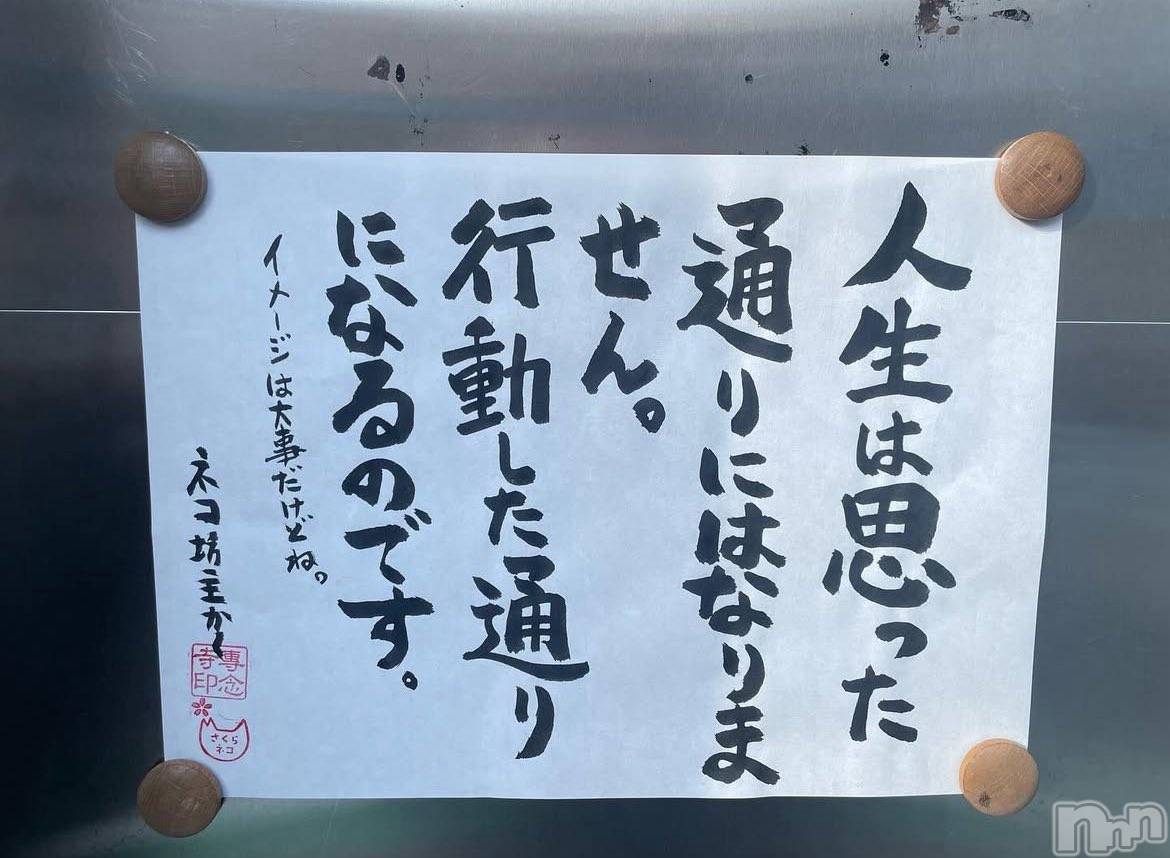 人生は思った
通りにはなりま
せん。
行動した通り
になるのです。
イメージは大事だけどね。
ネコ坊主かく
専念
寺印
さくら
ネコ
nnn